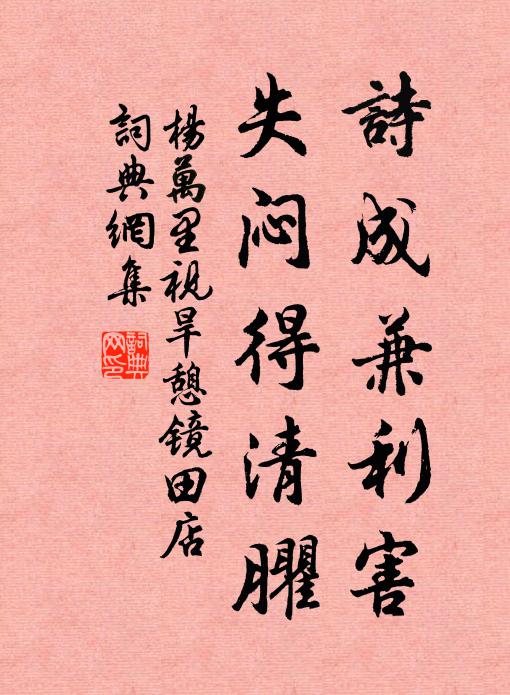 詩成兼利害
失闷得清臞
楊萬里视旱憩镜田店
詞典網集
詞典
网印